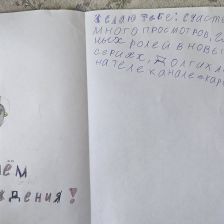 ём
ждения!
Желаю тебе: счаст
много просмотров, г
ных ролей в новы
сериях, долгих л
на телеканале «кар